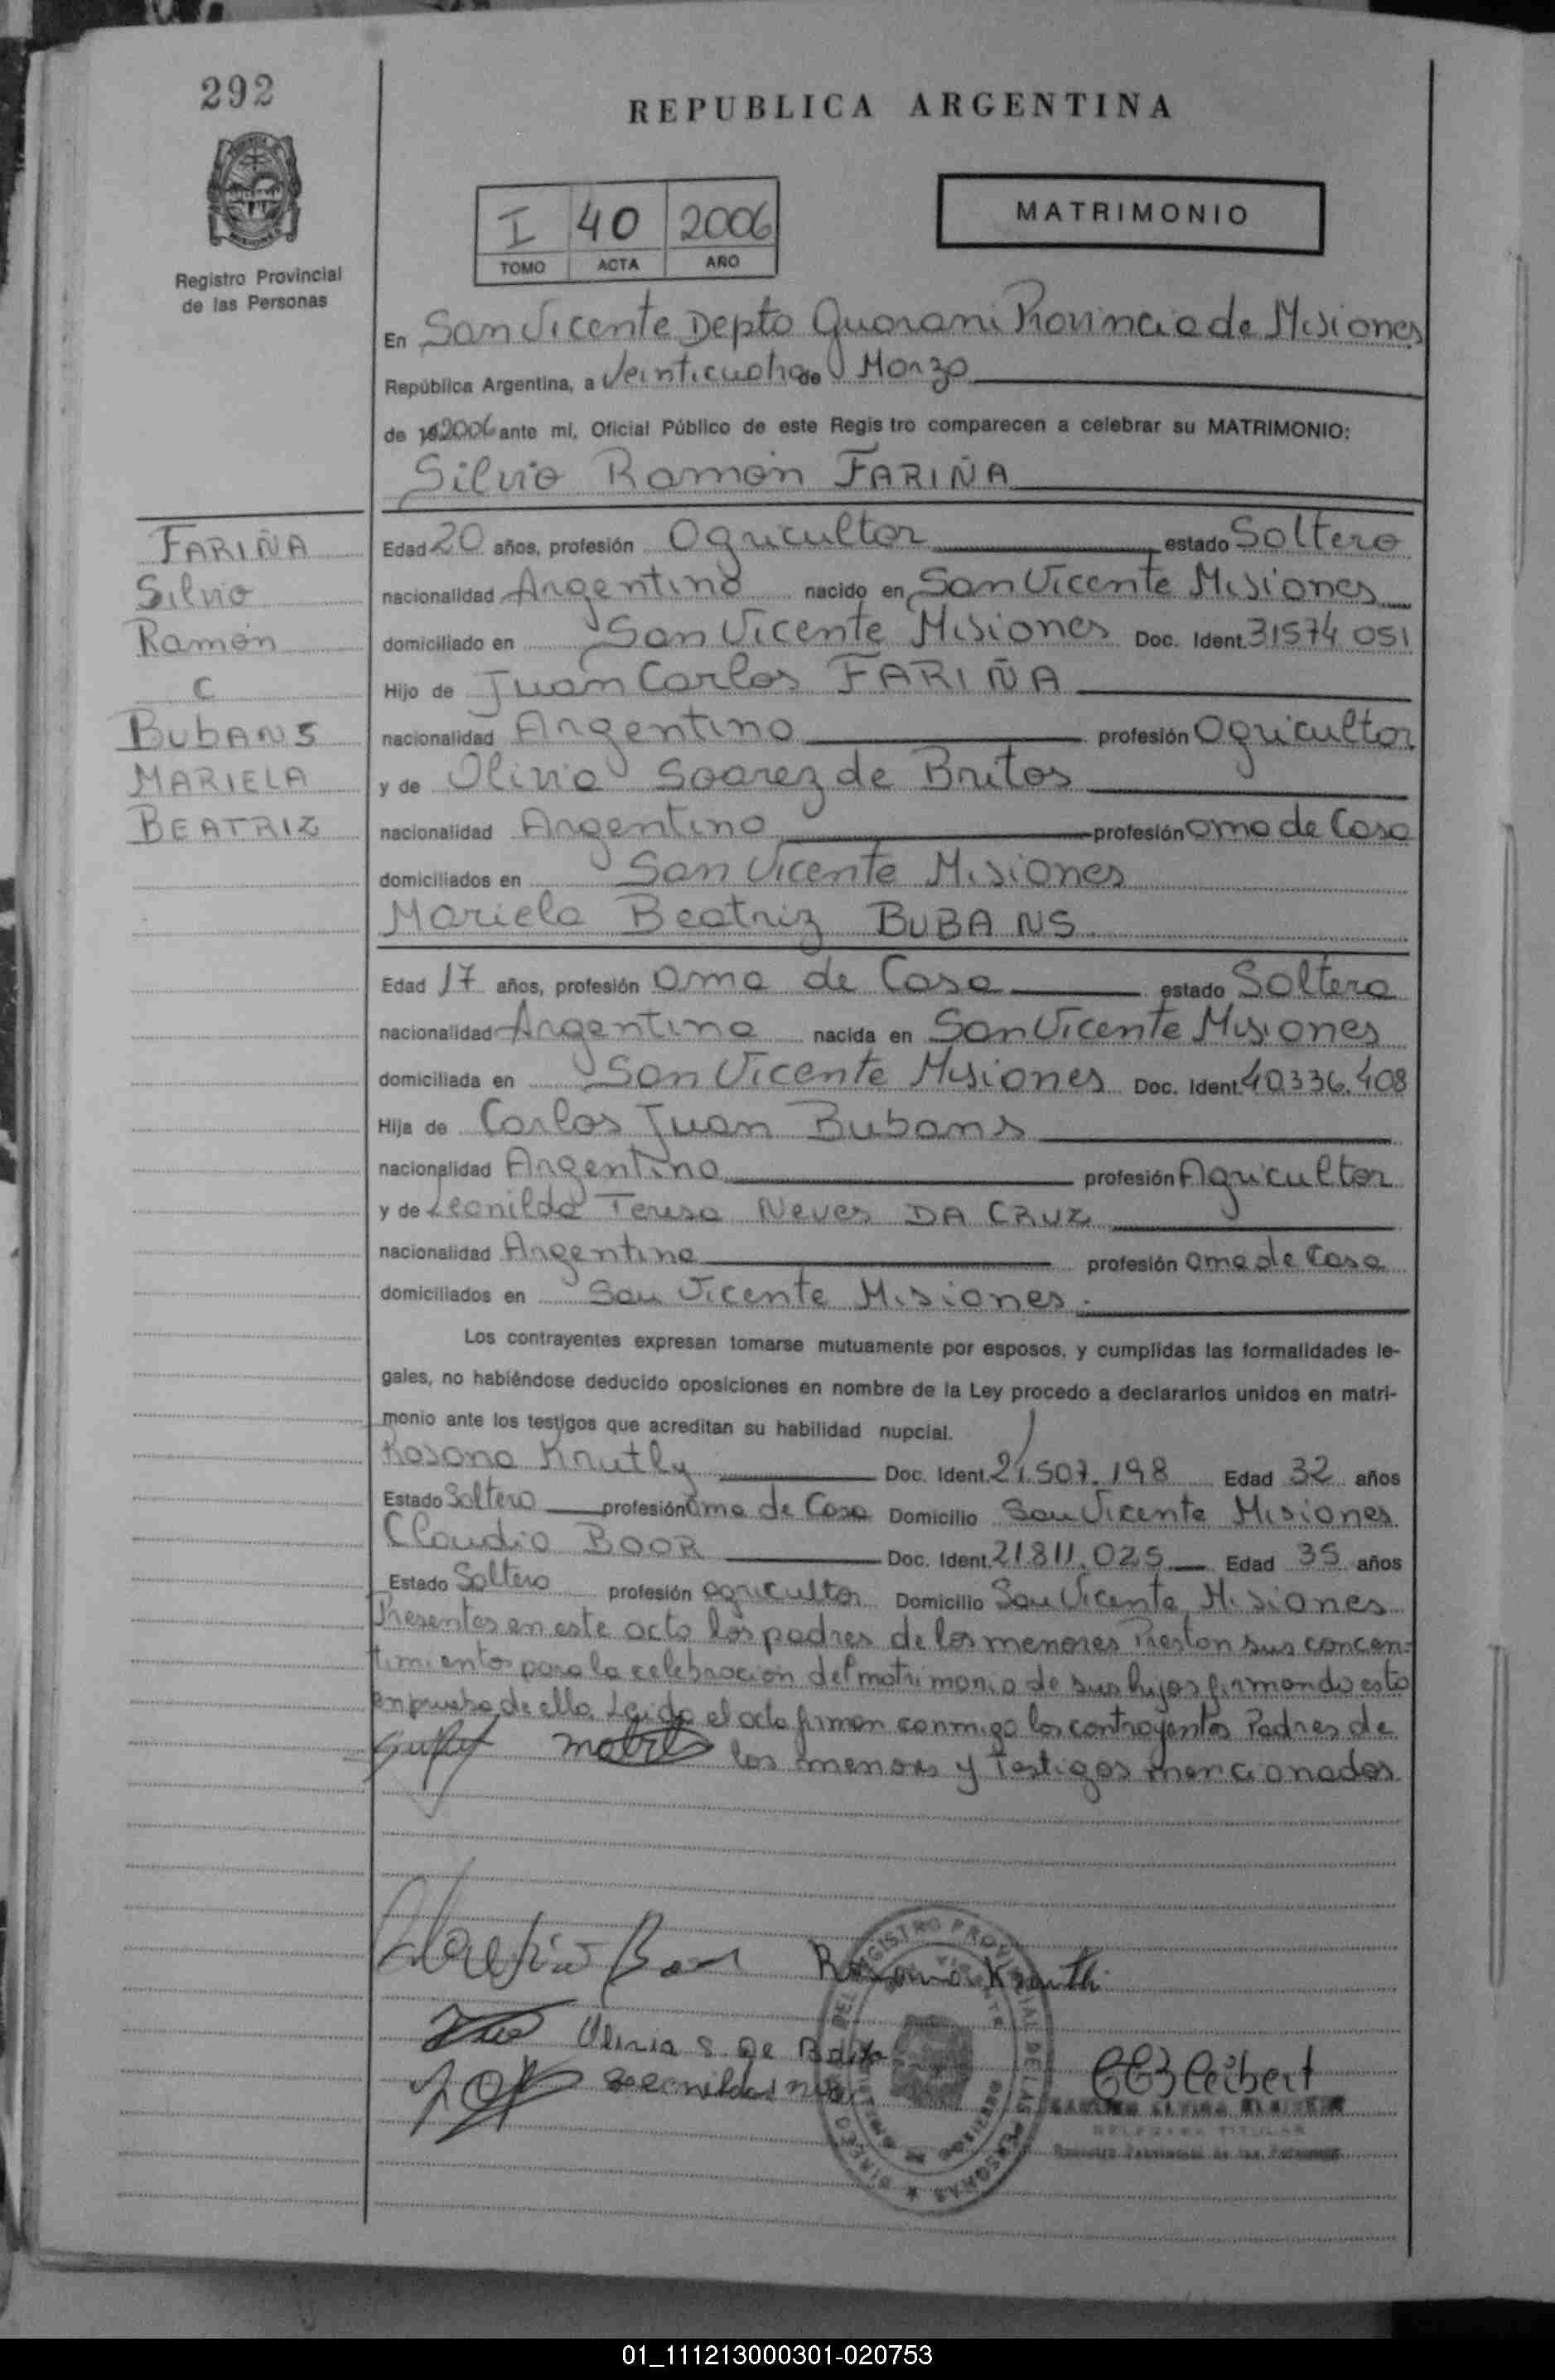 292
REPUBLICA ARGENTINA
Registro Provincial
de las Personas
I 40 2006
TOMO ACTA AÑO
MATRIMONIO
En San Vicente Depto Guarani Provincia de Misiones
República Argentina, a Veinticuatro de Marzo
de 19 2006 ante mí, Oficial Público de este Registro comparecen a celebrar su MATRIMONIO:
Silvio Ramón FARIÑA
FARIÑA
Silvio
Ramón
C
BUBANS
MARIELA
BEATRIZ
Edad 20 años, profesión Agricultor estado Soltero
nacionalidad Argentino nacido en San Vicente Misiones
domiciliado en San Vicente Misiones Doc. Ident. 31574 051
Hijo de Juan Carlos FARIÑA
nacionalidad Argentino profesión Agricultor
y de Olivia Soarez de Britos
nacionalidad Argentina profesión ama de Casa
domiciliados en San Vicente Misiones
Mariela Beatriz BUBANS
Edad 17 años, profesión Ama de Casa estado Soltera
nacionalidad Argentina nacida en San Vicente Misiones
domiciliada en San Vicente Misiones Doc. Ident. 40.336.408
Hija de Carlos Juan Bubans
nacionalidad Argentino profesión Agricultor
y de Leonilda Teresa Neves DA CRUZ
nacionalidad Argentina profesión ama de Casa
domiciliados en San Vicente Misiones.
Los contrayentes expresan tomarse mutuamente por esposos, y cumplidas las formalidades le-
gales, no habiéndose deducido oposiciones en nombre de la Ley procedo a declararlos unidos en matri-
monio ante los testigos que acreditan su habilidad nupcial.
Rosana Doc. Ident. 21.507.198 Edad 32 años
Estado Soltero profesión Ama de Casa Domicilio San Vicente Misiones
Claudio BOOR Doc. Ident. 21811.025 Edad 35 años
Estado Soltero profesión agricultor Domicilio San Vicente Misiones
Presentes en este acto los padres de los menores Prestan sus concen-
timientos para la celebración del matrimonio de sus hijos firmando esta
en prueba de ello. Leida el acta firman conmigo los contrayentes Padres de
los menores y Testigos mencionados
Claudio Boor
Olivia S. De
REGISTRO PROVINCIAL DE LAS PERSONAS
01_111213000301-020753